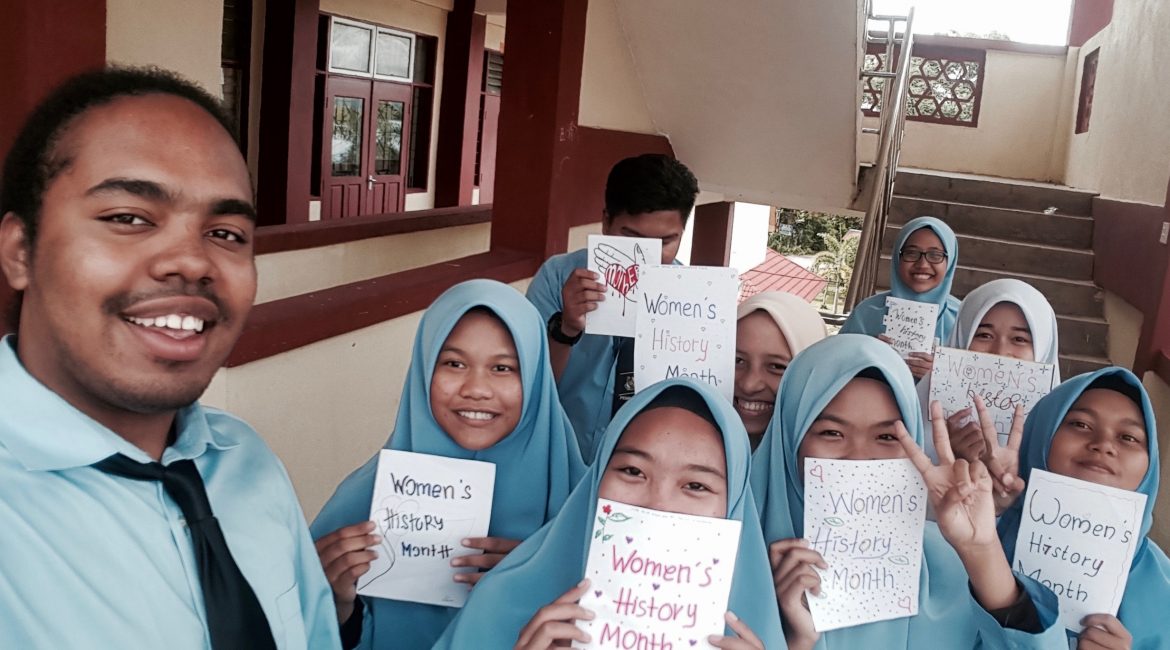 MOTHER
Women's
History
Month
Women's
History
month
WOMEN'S
histo
Women's
HIStORY
MONtH
Women's
History
Month
Women's
History
Month
Women's
History
Month